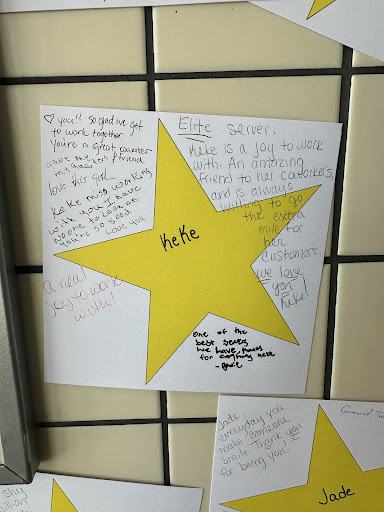 ♡ you!! so glad we get
to work together
You're a great coworker
friend
love this girl
KeKe miss working
with you I have
no one to lean on
you're so good
Love you
Elite server.
Keke is a joy to work
with. An amazing
friend to her coworkers,
and is always
willing to go
the extra
mile for
her
customers.
we love
you
Keke!
KeKe
a real
joy to work
with!
one of the
best servers
we have, thanks
for
Jade,
everyday you
make someone
smile. Thank you
for being you!
Jade
shy